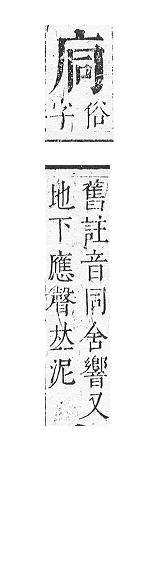 俗
字
舊註音同舍響又
地下應聲𠀤泥